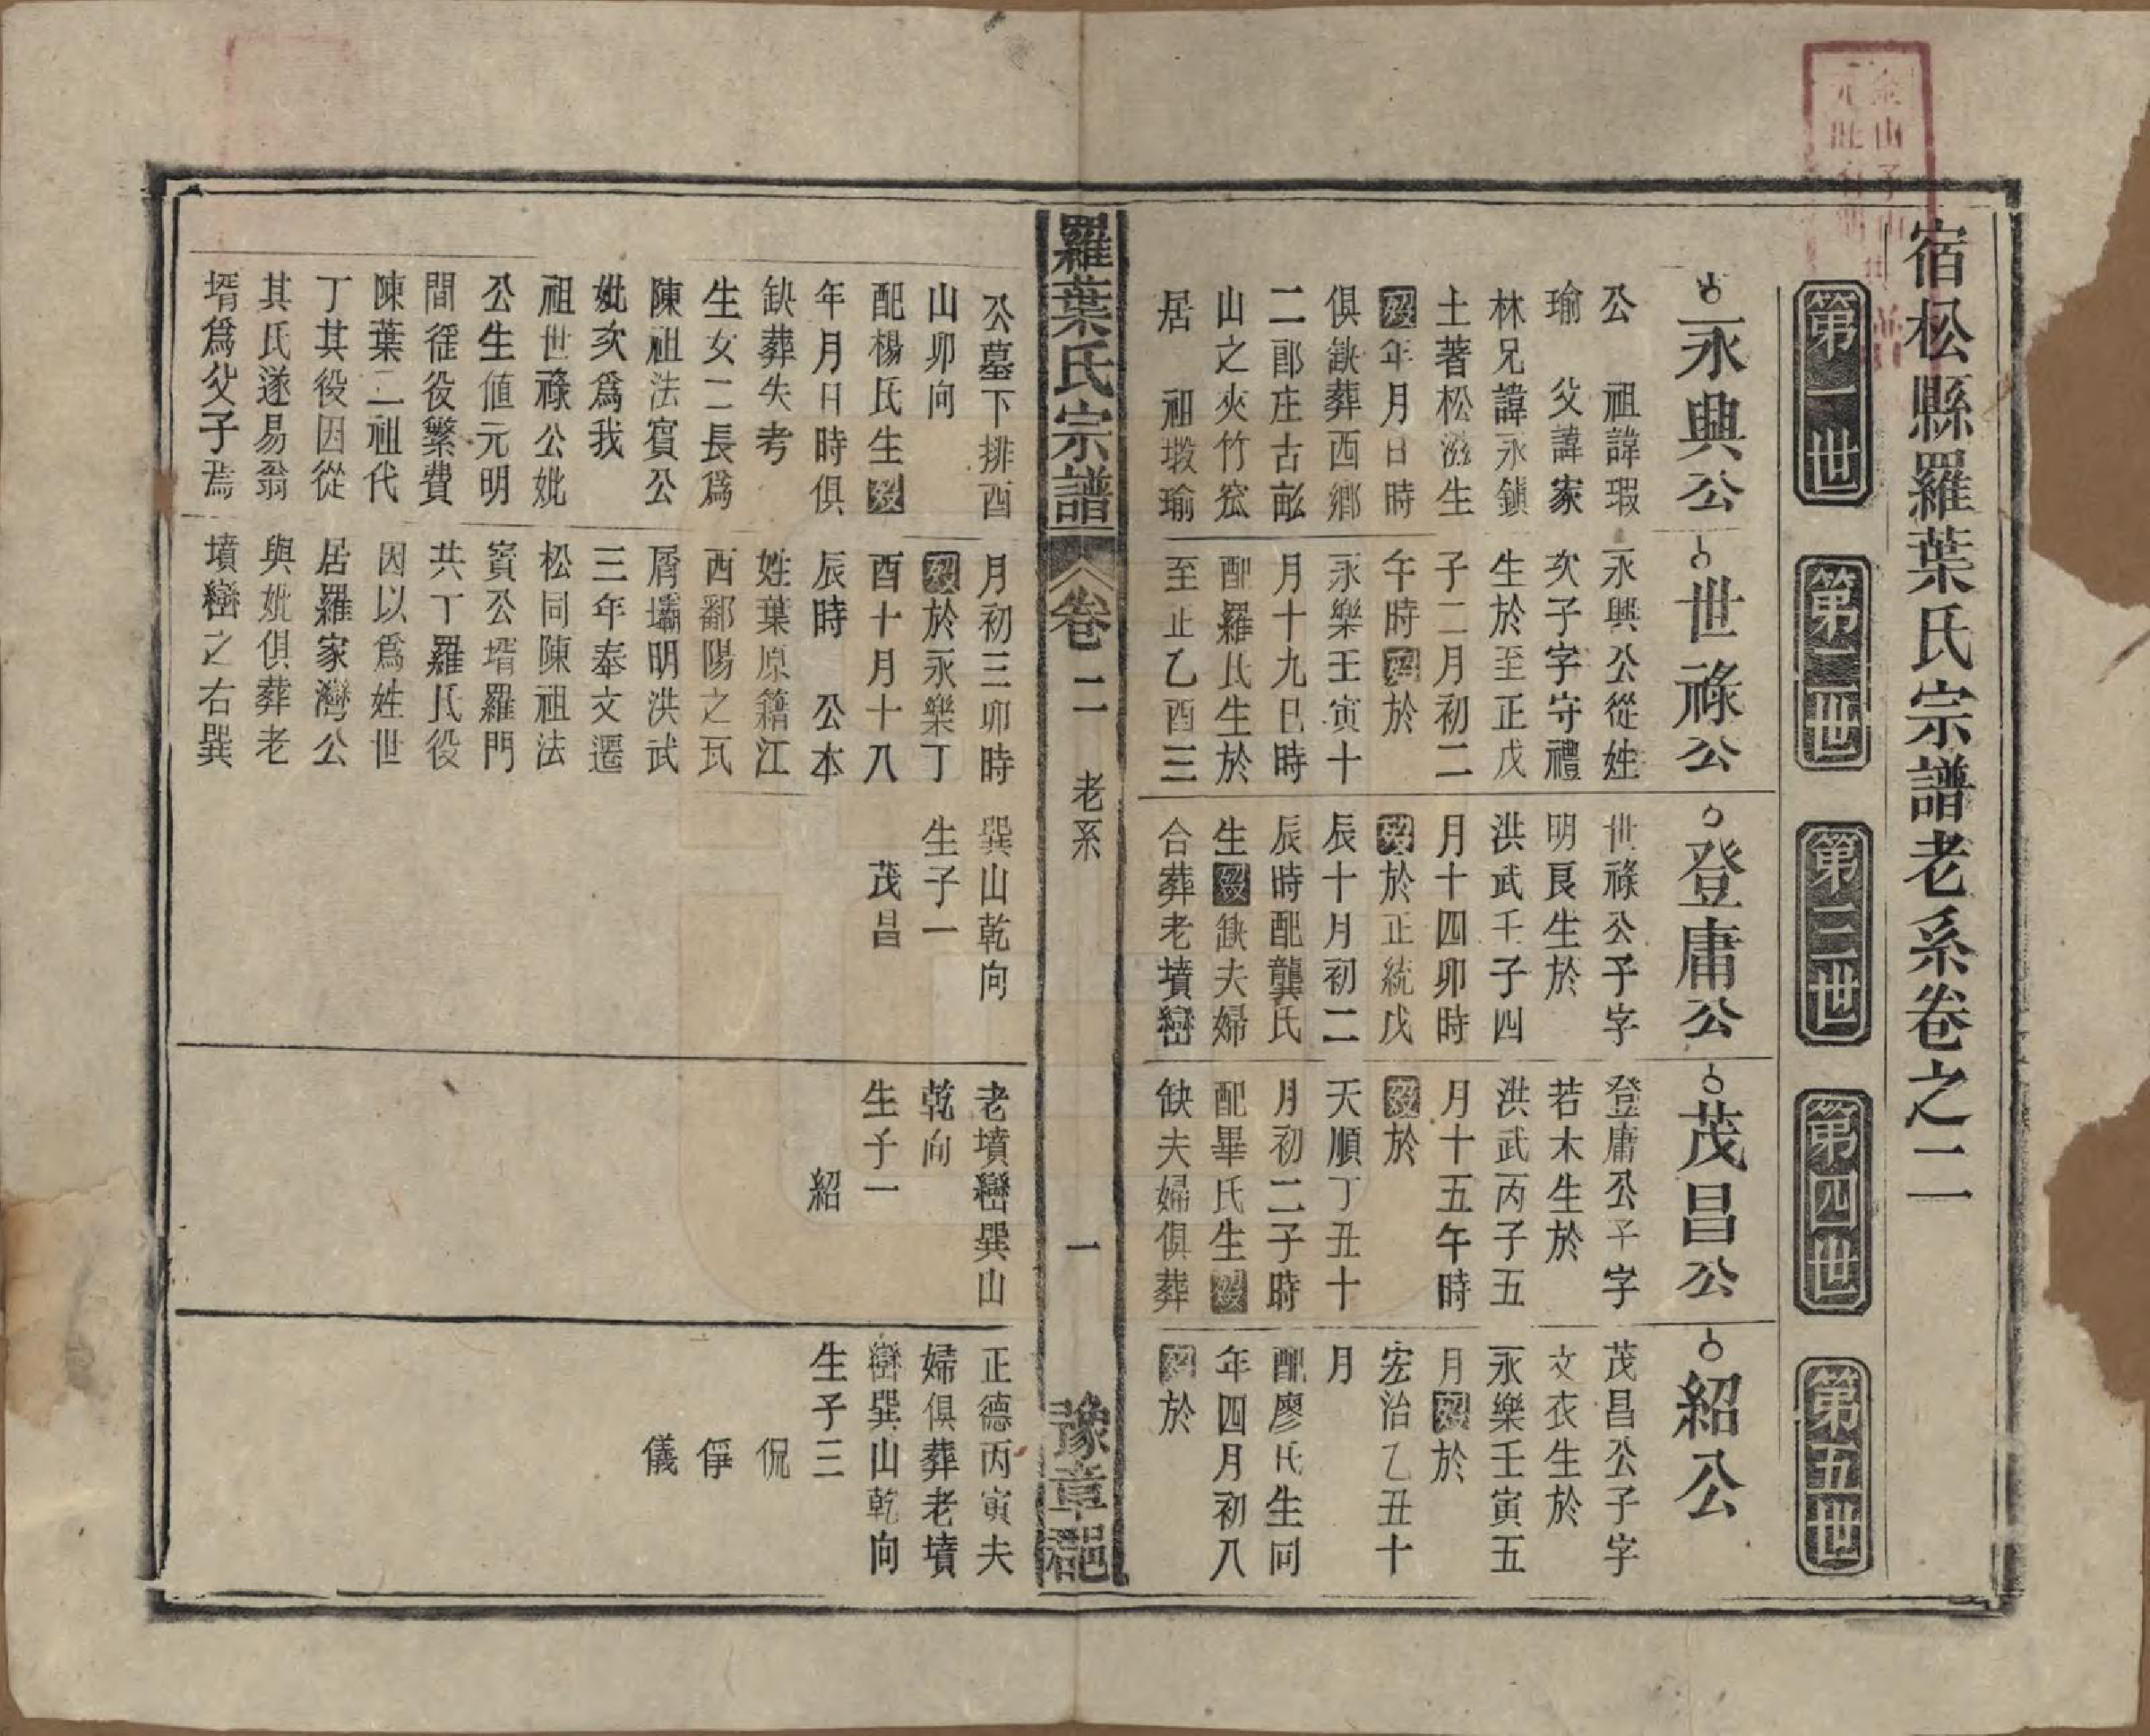 宿松縣羅葉氏宗譜老系卷之二
第一世
第二世
第三世
第四世
第五世
永興公
公　祖諱瑕
瑜　父諱家
林兄諱永鎖
土著松滋生
歿年月日時
俱缺葬西鄉
二郎庄古畆
山之夾竹窊
居　祖塅瑜
世祿公
永興公從姓
次子字守禮
生於至正戊
子二月初二
午時歿於
永樂壬寅十
月十九巳時
配羅氏生於
至正乙酉三
登庸公
世祿公子字
明良生於
洪武壬子四
月十四卯時
歿於正統戊
辰十月初二
辰時配龔氏
生歿缺夫婦
合葬老墳巒
茂昌公
登庸公子字
若木生於
洪武丙子五
月十五午時
歿於
天順丁丑十
月初二子時
配畢氏生歿
缺夫婦俱葬
紹公
茂昌公子字
文衣生於
永樂壬寅五
月歿於
宏治乙丑十
月
配廖氏生同
年四月初八
歿於
羅葉氏宗譜
卷二　老系
一
豫章郡
公墓下排酉
山卯向
配楊氏生歿
年月日時俱
缺葬失考
生女二長爲
陳祖法賓公
妣次爲我
祖世祿公妣
公生値元明
間徭役繁費
陳葉二祖代
丁其役因從
其氏遂易翁
壻爲父子焉
月初三卯時
歿於永樂丁
酉十月十八
辰時　公本
姓葉原籍江
西鄱陽之瓦
屑壩明洪武
三年奉文遷
松同陳祖法
賓公壻羅門
共丁羅氏役
因以爲姓世
居羅家灣公
與妣俱葬老
墳巒之右巽
巽山乾向
生子一
茂昌
老墳巒巽山
乾向
生子一
紹
正德丙寅夫
婦俱葬老墳
巒巽山乾向
生子三
侃
俜
儀